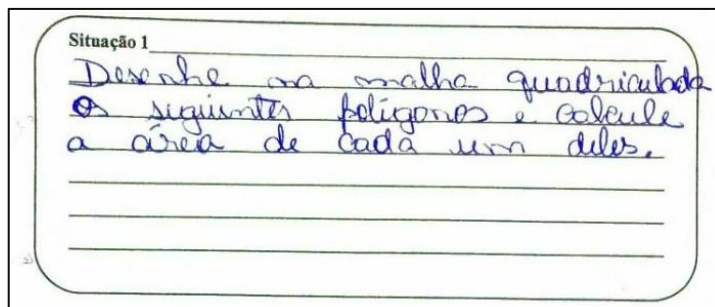 Situação 1
Desenhe na malha quadriculada
os siguintes polígonos e calcule
a área de cada um deles.